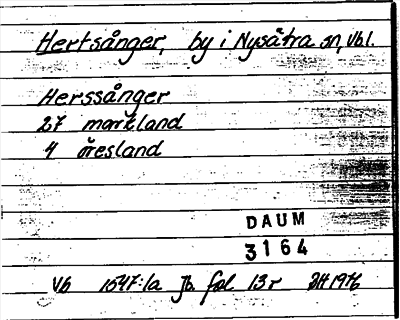 Hertsånger, by i Nysätra sn, Vbl.
Herssånger
27 markland
4 öresland
DAUM
3164
Vb 1547:1a Jb. fol 13r BH 1976